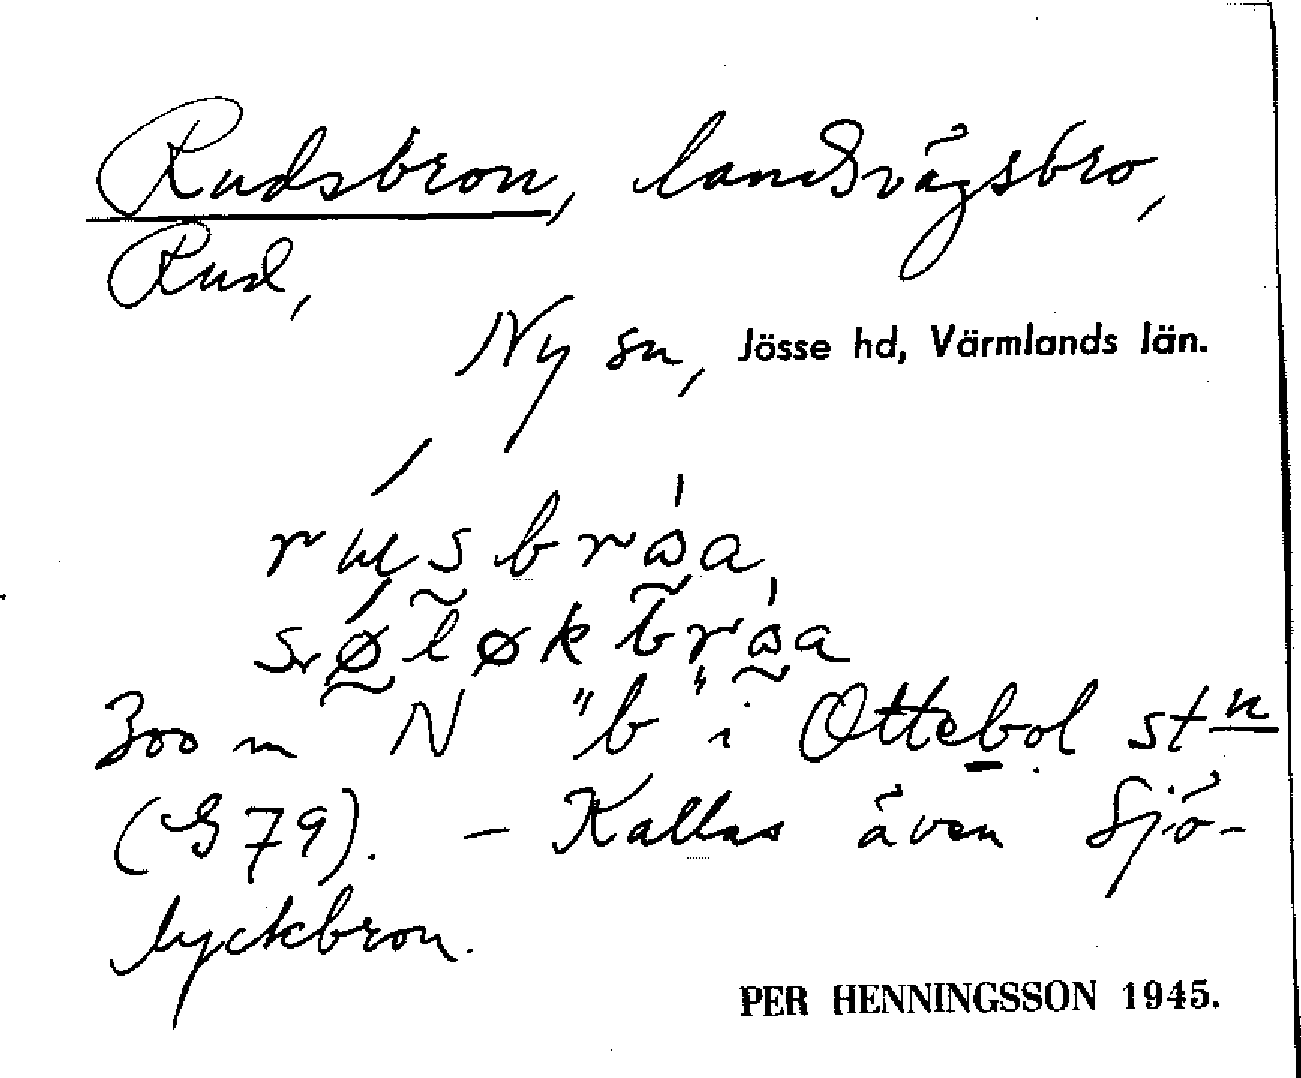 Rudsbron, landsvägsbro,
Rud,
Ny sn, Jösse hd, Värmlands län.
300 m N "b" i Ottebol stn
(G 79). – Kallas även Sjö-
lyckbron.
PER HENNINGSSON 1945.